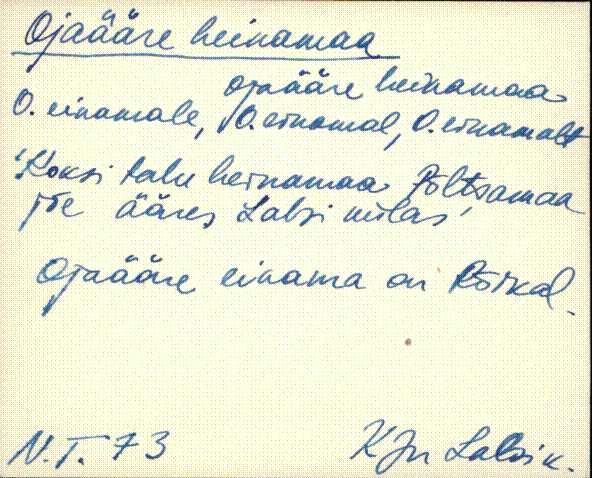 Ojaääre heinamaa
ojaääre heinamaa
O. einamale, O. einamal, O. einamalt
'Koksi talu heinamaa Põltsamaa
jõe ääres Lalsi külas'
Ojaääre einama on Põikal.
N.T. 73 KJn Lalsi k.